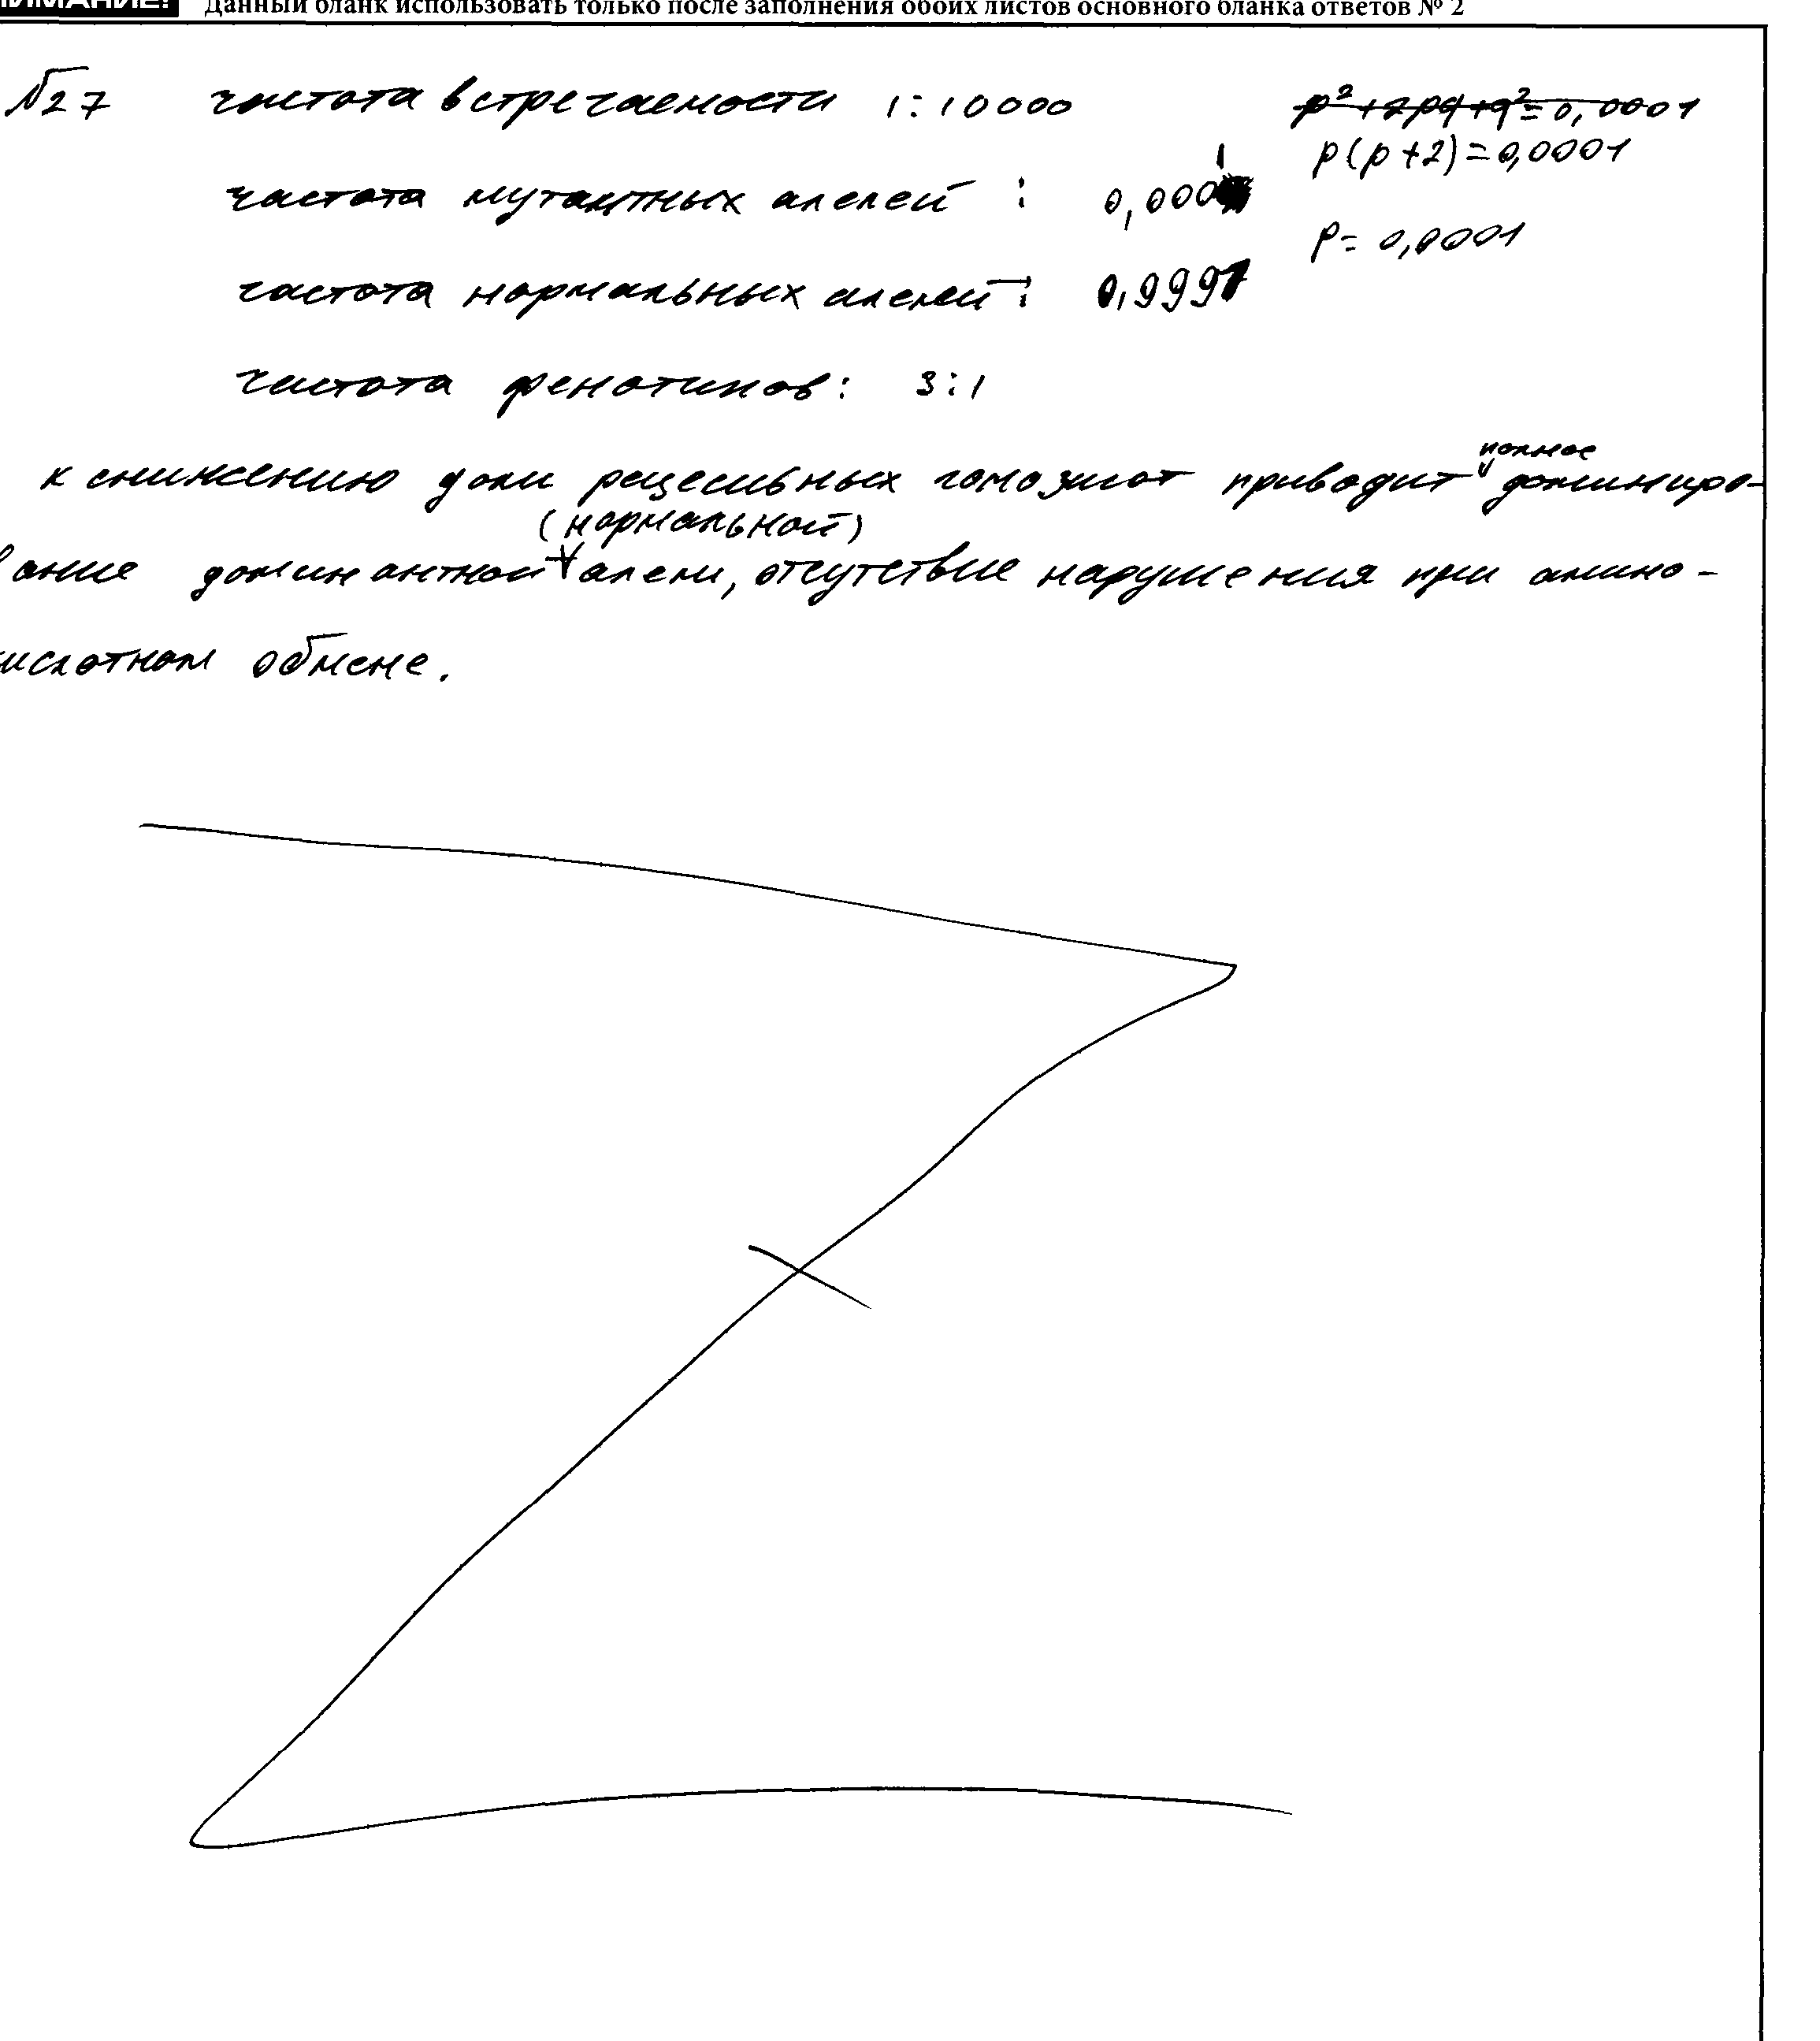 ВНИМАНИЕ! Данный бланк использовать только после заполнения обоих листов основного бланка ответов № 2
№27 частота встречаемости 1:10000
p²+2pq+q²=0,0001
p(p+2)=0,0001
частота мутантных алелей : 0,0001
p=0,0001
частота нормальных алелей:
частота фенотипов: 3:1
к снижению доли рецесивных гомозигот приводит полное доминиро-
вание доминантной (нормальной) алели, отсутствие нарушения при амино-
кислотном обмене.